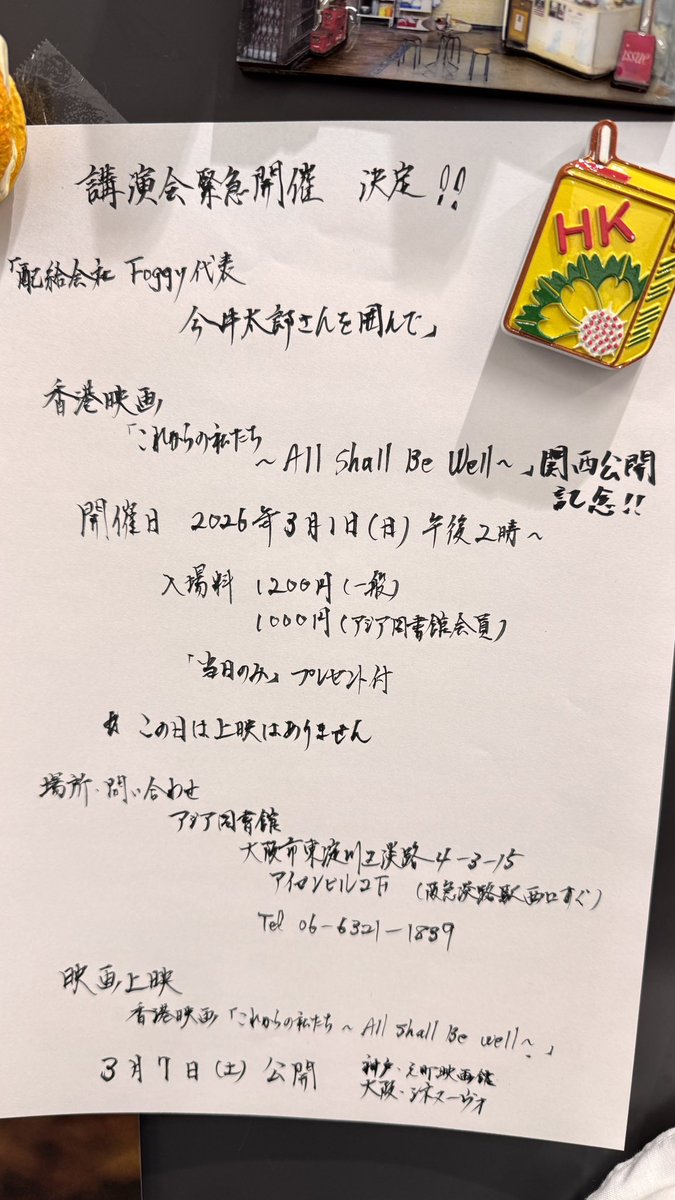 issue
HK
講演会緊急開催 決定!!
「配給会社 Foggy代表
今井太郎さんを囲んで」
香港映画
「これからの私たち
~ All Shall Be Well~」関西公開
記念!!
開催日 2026年3月1日(日)午後2時~
入場料 1200円(一般)
1000円(アジア図書館会員)
「当日のみ」プレゼント付
* この日は上映はありません
場所・問い合わせ
アジア図書館
大阪市東淀川区淡路4-3-15
(阪急淡路駅西口すぐ)
Tel 06-6321-1839
映画上映
香港映画「これからの私たち~ All Shall Be Well~」
3月7日(土)公開
神戸・元町映画館
大阪・シネヌーヴォ